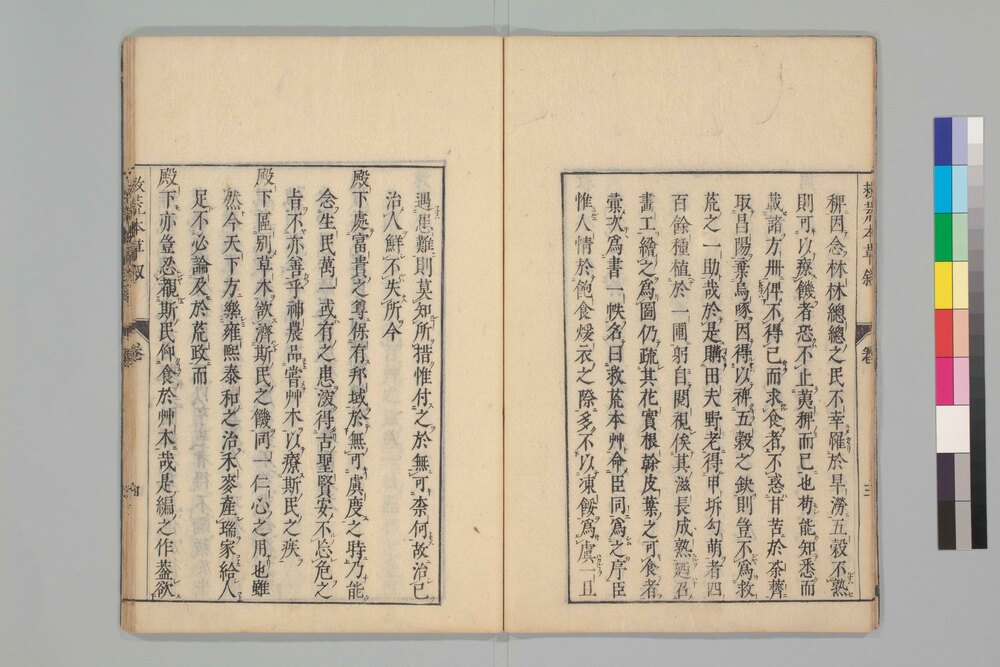 稗因念林林總總之民不幸罹於旱澇五穀不熟
則可以療饑者恐不止荑稗而已也苟能知悉而
載諸方冊俾不得已而求食者不惑甘苦於荼薺
取昌陽棄烏啄因得以裨五穀之缺則豈不爲救
荒之一助哉於是購田夫野老得甲坼勾萌者四
百餘種植於一圃躬自閱視俟其滋長成熟廼召
畫工繪之爲圖仍疏其花實根榦皮葉之可食者
彚次爲書一帙名曰救荒本艸命臣同爲之序臣
惟人情於飽食煖衣之際多不以凍餒爲虞一旦
遇患難則莫知所措惟付之於無可柰何故治己
治人鮮不失所今
殿下處富貴之尊保有邦域於無可虞度之時乃能
念生民萬一或有之患深得古聖賢安不忘危之
旨不亦善乎神農品嘗艸木以療斯民之疾
殿下區別草木欲濟斯民之饑同一仁心之用也雖
然今天下方樂雍熙泰和之治禾麥產瑞家給人
足不必論及於荒政而
殿下亦豈忍視斯民仰食於艸木哉是編之作葢欲
救荒本草叙
卷